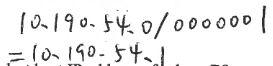 10.190.54.0/0000001
=10.190.54.1